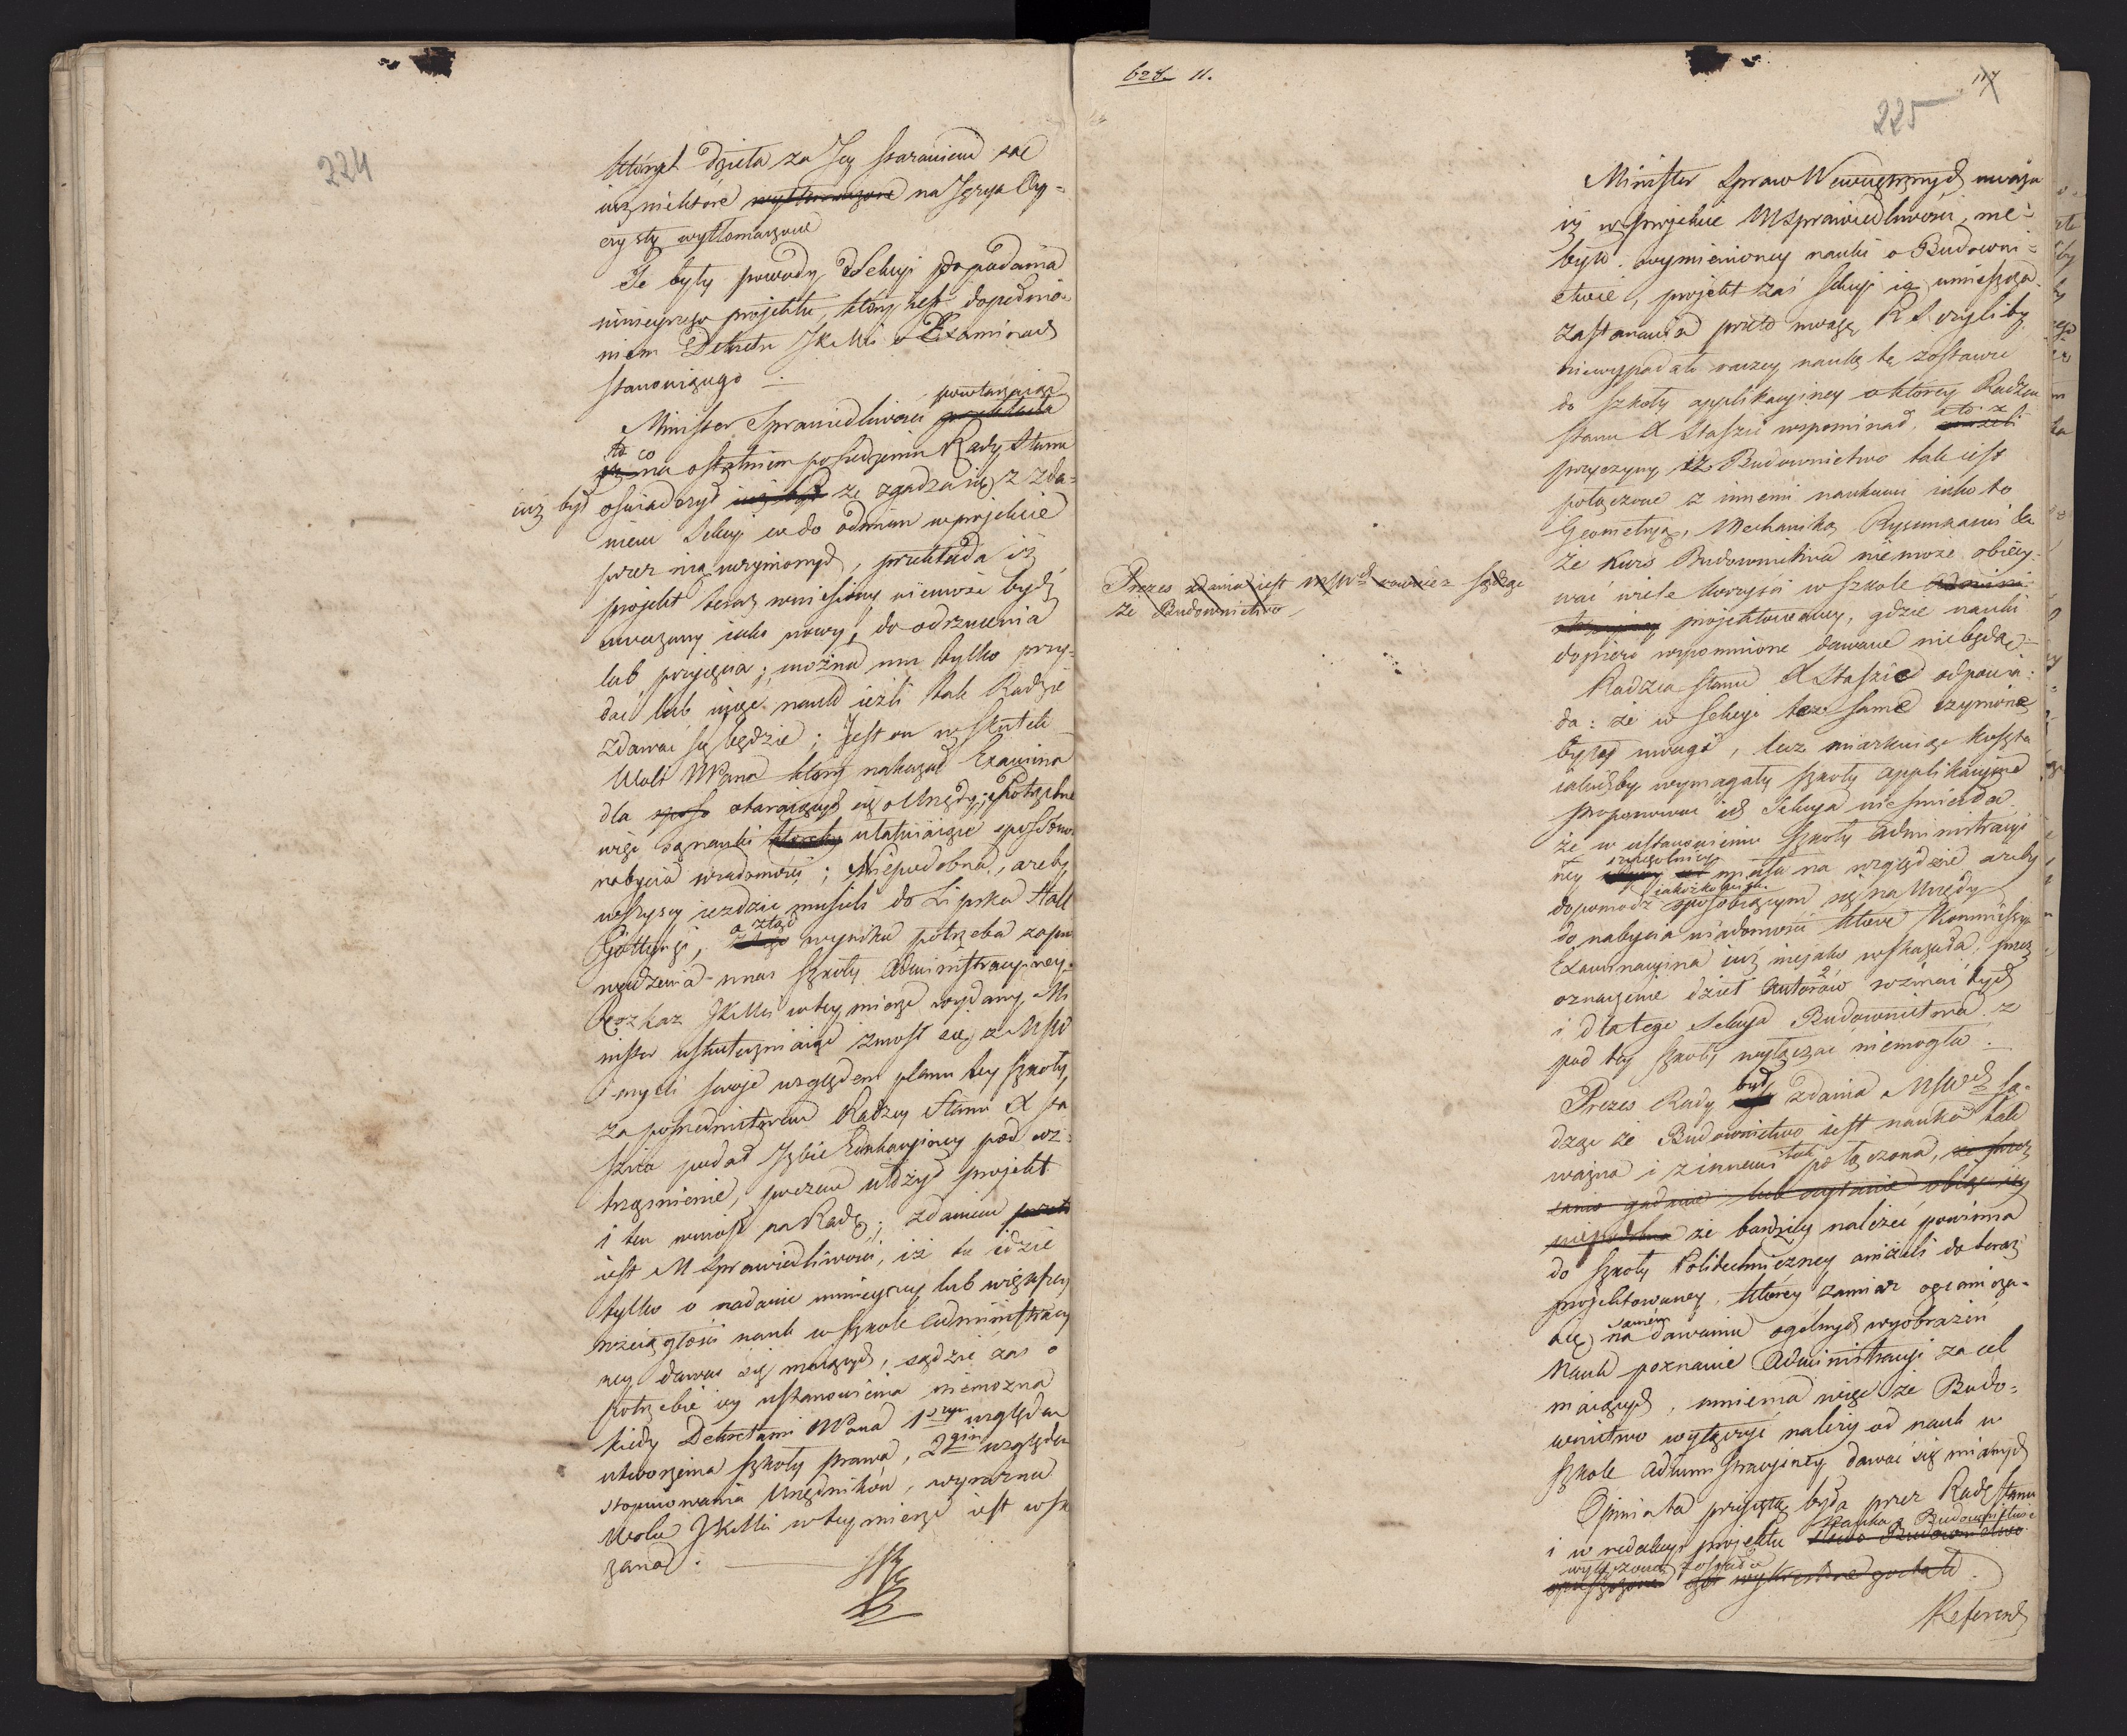 224
których dzieła za Jey staraniem są
iuż niektóre wytłomaczone na Język Oy-
czysty wytłomaczone
Te były powody Sekcyi do podania
ninieyszego projektu, który iest dopełnie-
niem Dekretu JKMci o Examinach
stanowiącego
Minister Sprawiedliwości powtarzaiąc
to co na ostatniem posiedzeniu Rady Stanu
iuż był oświadczył iuż był że zgadza się z zda-
niem Sekcyi co do odmian w projekcie
przez nią uczynionych, przekłada iż
projekt teraz wniesiony niemoże bydź
uważany iako nowy, do odrzucenia
lub przyięcia; można mu tylko przy-
dać lub uiąć nauk ieżli tak Radzie
zdawać się będzie; Jest on w skutek
Woli NPana który nakazał Examina
dla staraiących się o Urzędy; Potrzebne
więc są nauki ułatwiaiące sposobność
nabycia wiadomości; Niepodobna, ażeby
wszyscy ieździć musieli do Lipska Hall
Göttyngi, a ztąd wynika potrzeba zapro-
wadzenia u nas Szkoły Administracyiney.
Rozkaz JKMci w tey mierze wydany Mi-
nister uskuteczniaiąc zniosł się z MSW
i myśli swoje względem planu tey Szkoły,
za pośrednictwem Radzcy Stanu X Sta-
szica podał Izbie Edukacyiney pod roz-
trząśnienie, poczem ułożył projekt
i ten wniosł na Radę; zdaniem
iest M Sprawiedliwości, iż tu idzie
tylko o nadanie mnieyszey lub większey
rozciągłości nauk w szkole administracyi-
ney dawać się maiących, sądzić zaś o
potrzebie iey ustanowienia niemożna
kiedy Dekretami NPana 1szym względem
utworzenia szkoły prawa, 2gim względem
stopniowania Urzędników, wyraźna
Wola JKMci w tey mierze iest wska-
zana.
628 11.
117
225
Minister Spraw Wewnętrznych uważa
iż w projekcie MSprawiedliwości, nie-
było wymienioney nauki o Budowni-
ctwie, projekt zaś Sekcyi ią umieszcza
zastanawia przeto uwagę RS czyliby
niewypadało raczey naukę tę zostawić
do szkoły applikacyiney o którey Radzca
Stanu X Staszic wspominał, a to z
przyczyny, iż Budownictwo tak iest
połączone z innemi naukami iako to
Geometryą, Mechaniką Rysunkami &a
że kurs Budownictwa niemoże obiecy-
wać wiele korzyści w szkole
projektowaney, gdzie nauki
dopiero wspomnione dawane niebędą.
Prezes zdania iest MSWch również sądząc
że Budownictwo
Radzca Stanu X Staszic odpowia-
da: że w Sekcyi też same czynione
były uwagi, lecz miarkuiąc koszta
iakichby wymagały szkoły applikacyjne
proponować ich Sekcya nieśmiała
że w ustanowieniu szkoły administracyi-
ney szczególniey miała na względzie ażeby
dopomódz sposobiącym się na Urzędy
do nabycia wiadomości które Kommissya
Examinacyjna iuż niejako wskazała przez
oznaczenie dzieł Autorów różnych
i dlatego Sekcya Budownictwa z
pod tey szkoły wyłączać niemogła.
Prezes Rady był zdania MSWch są-
dząc że Budownictwo iest nauką tak
ważną i z innemi tak połączoną,
że bardziey należeć powinna
do szkoły Politechniczney aniżeli do teraz
projektowaney, którey zamiar ogranicza
się na samem dawaniu ogólnych wyobrażeń
Nauk poznanie Administracyi za cel
maiących, mniema więc że Budo-
wnictwo wyłączyć należy od nauk w
szkole administracyiney dawać się mianych
Opinia ta przyięta była przez Radę Stanu
i w redakcyi projektu Nauka o Budownictwie
wyłączona została
Referend